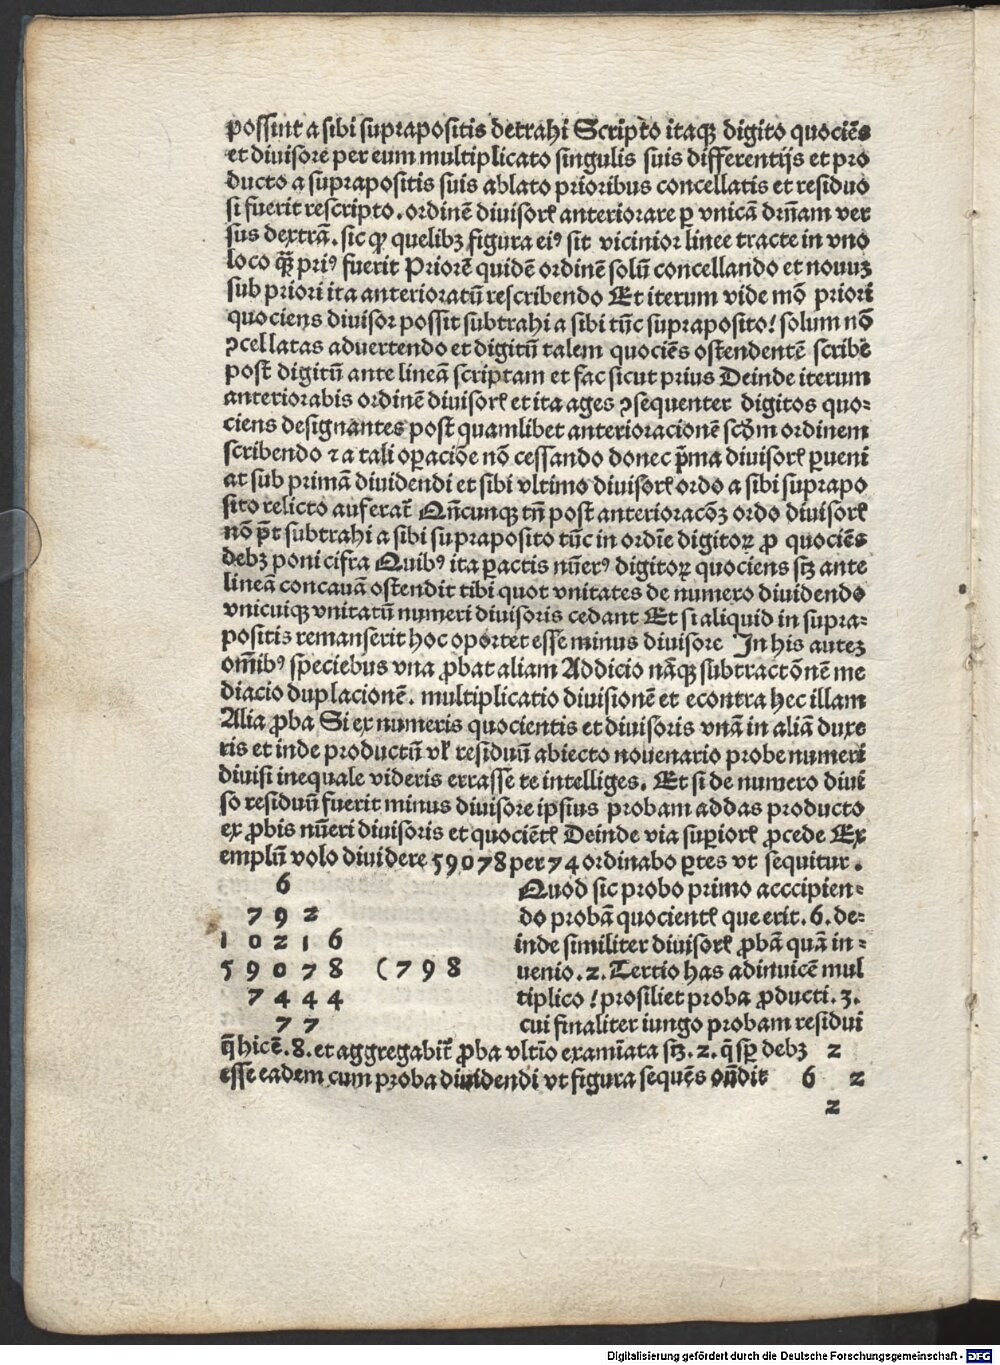 possint a sibi suprapositis detrahi Scripto itaqꝫ digito quociēs
et divisore per eum multiplicato singulis suis differentijs et pro
ducto a suprapositis suis ablato prioribus concellatis et residuo
si fuerit rescripto. ordinē divisorꝭ anteriorare ꝑ vnicā drn̄am ver
sus dextrā. sic ꝙ quelibꝫ figura eiꝰ sit vicinior linee tracte in vno
loco q̄ꝫ priꝰ fuerit Priorē quidē ordinē solū concellando et nouuꝫ
sub priori ita anterioratū rescribendo Et iterum vide mō priori
quociens divisor possit subtrahi a sibi tūc supraposito! solum nō
ꝯcellatas advertendo et digitū talem quociēs ostendentē scribe
post digitū ante lineā scriptam et fac sicut prius Deinde iterum
anteriorabis ordinē divisorꝭ et ita ages ꝯsequenter digitos quo⸗
ciens designantes post quamlibet anterioracionē scḋm ordinem
scribendo ⁊ a tali oꝑaciōe nō cessando donec p̄ma divisorꝭ ꝑueni
at sub primā dividendi et sibi vltimo divisorꝭ ordo a sibi suprapo
sito relicto auferat̄ Qn̄cunqꝫ tn̄ post anterioracōꝫ ordo divisorꝭ
nō p̄t subtrahi a sibi supraposito tūc in ordīe digitoꝝ ꝓ quociēs
debꝫ poni cifra Quibꝰ ita ꝑactis nūerꝰ digitoꝝ quociens sꝫ ante
lineā concauā ostendit tibi quot vnitates de numero dividendo
vnicuiqꝫ vnitatū numeri divisoris cedant Et si aliquid in supra⸗
positis remanserit hoc oportet esse minus divisore In his auteꝫ
om̄ibꝰ speciebus vna ꝓbat aliam Addicio nāqꝫ subtractōnē me
diacio duplacionē. multiplicatio divisionē et econtra hec illam
Alia ꝓba Si ex numeris quocientis et divisoris vnā in aliā duxe
ris et inde productū vꝉ residuū abiecto nouenario probe numeri
divisi inequale videris errasse te intelliges. Et si de numero divi
so residuū fuerit minus divisore ipsius probam addas producto
ex ꝓbis nūeri divisoris et quociētꝭ Deinde via suꝑiorꝭ ꝓcede Ex
emplū volo dividere 59078 per 74 ordinabo ꝑtes vt sequitur.
6
7 9 2
1 0 2 1 6
5 9 0 7 8 (7 9 8
7 4 4 4
7 7
Quod sic probo primo acccipien⸗
do probā quocientꝭ que erit. 6. de⸗
inde similiter divisorꝭ ꝓbā quā in⸗
uenio. 2. Tertio has adinuicē mul
tiplico! prosiliet proba ꝓducti. 3.
cui finaliter iungo probam residui
q̄ hic ē. 8. et aggregabit̄ ꝓba vltīo examīata sꝫ. 2. q̄ sꝑ debꝫ 2
esse eadem cum proba dividendi vt figura sequēs on̄dit 6 2
2
Digitalisierung gefördert durch die Deutsche Forschungsgemeinschaft - DFG